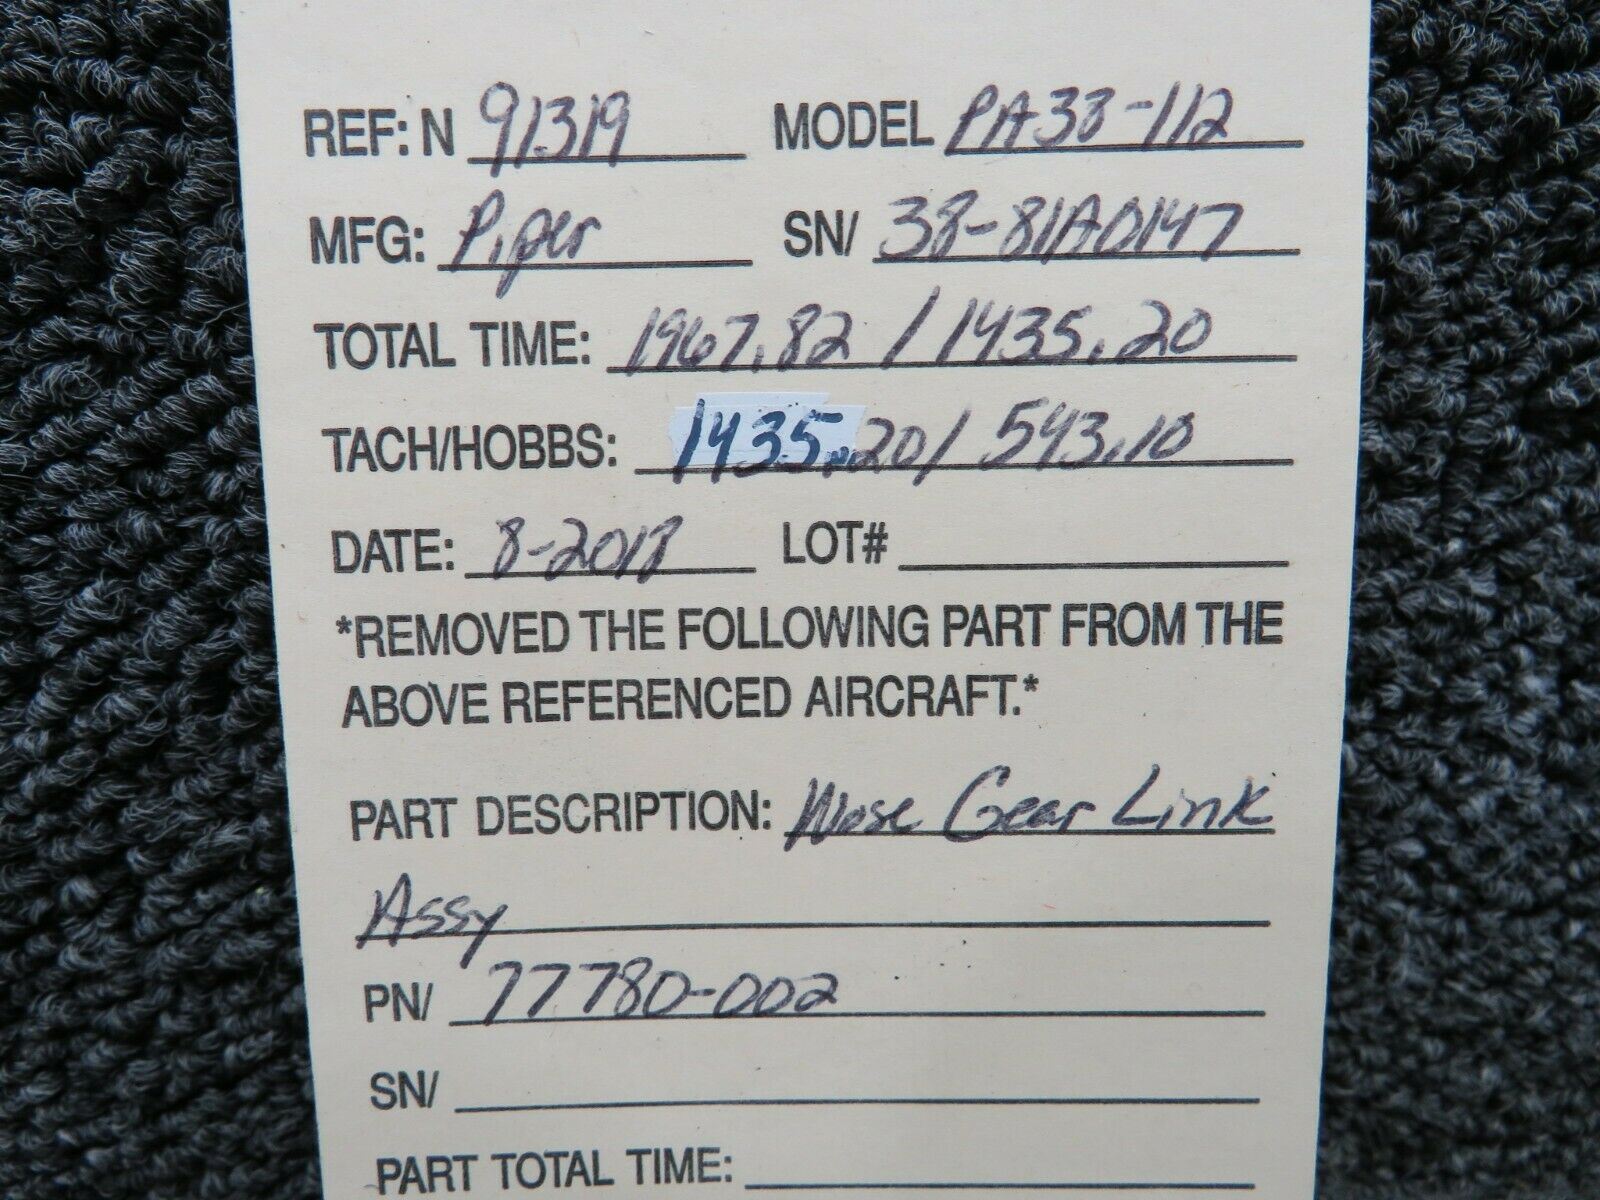 REF: N 91319 MODEL PA38-112
MFG: Piper SN/ 38-81A0147
TOTAL TIME: 1967.82 / 1435.20
TACH/HOBBS: 1435.20 / 543.10
DATE: 8-2018 LOT#
*REMOVED THE FOLLOWING PART FROM THE
ABOVE REFERENCED AIRCRAFT.*
PART DESCRIPTION: Nose Gear Link
Assy
PN/ 77780-002
SN/
PART TOTAL TIME: